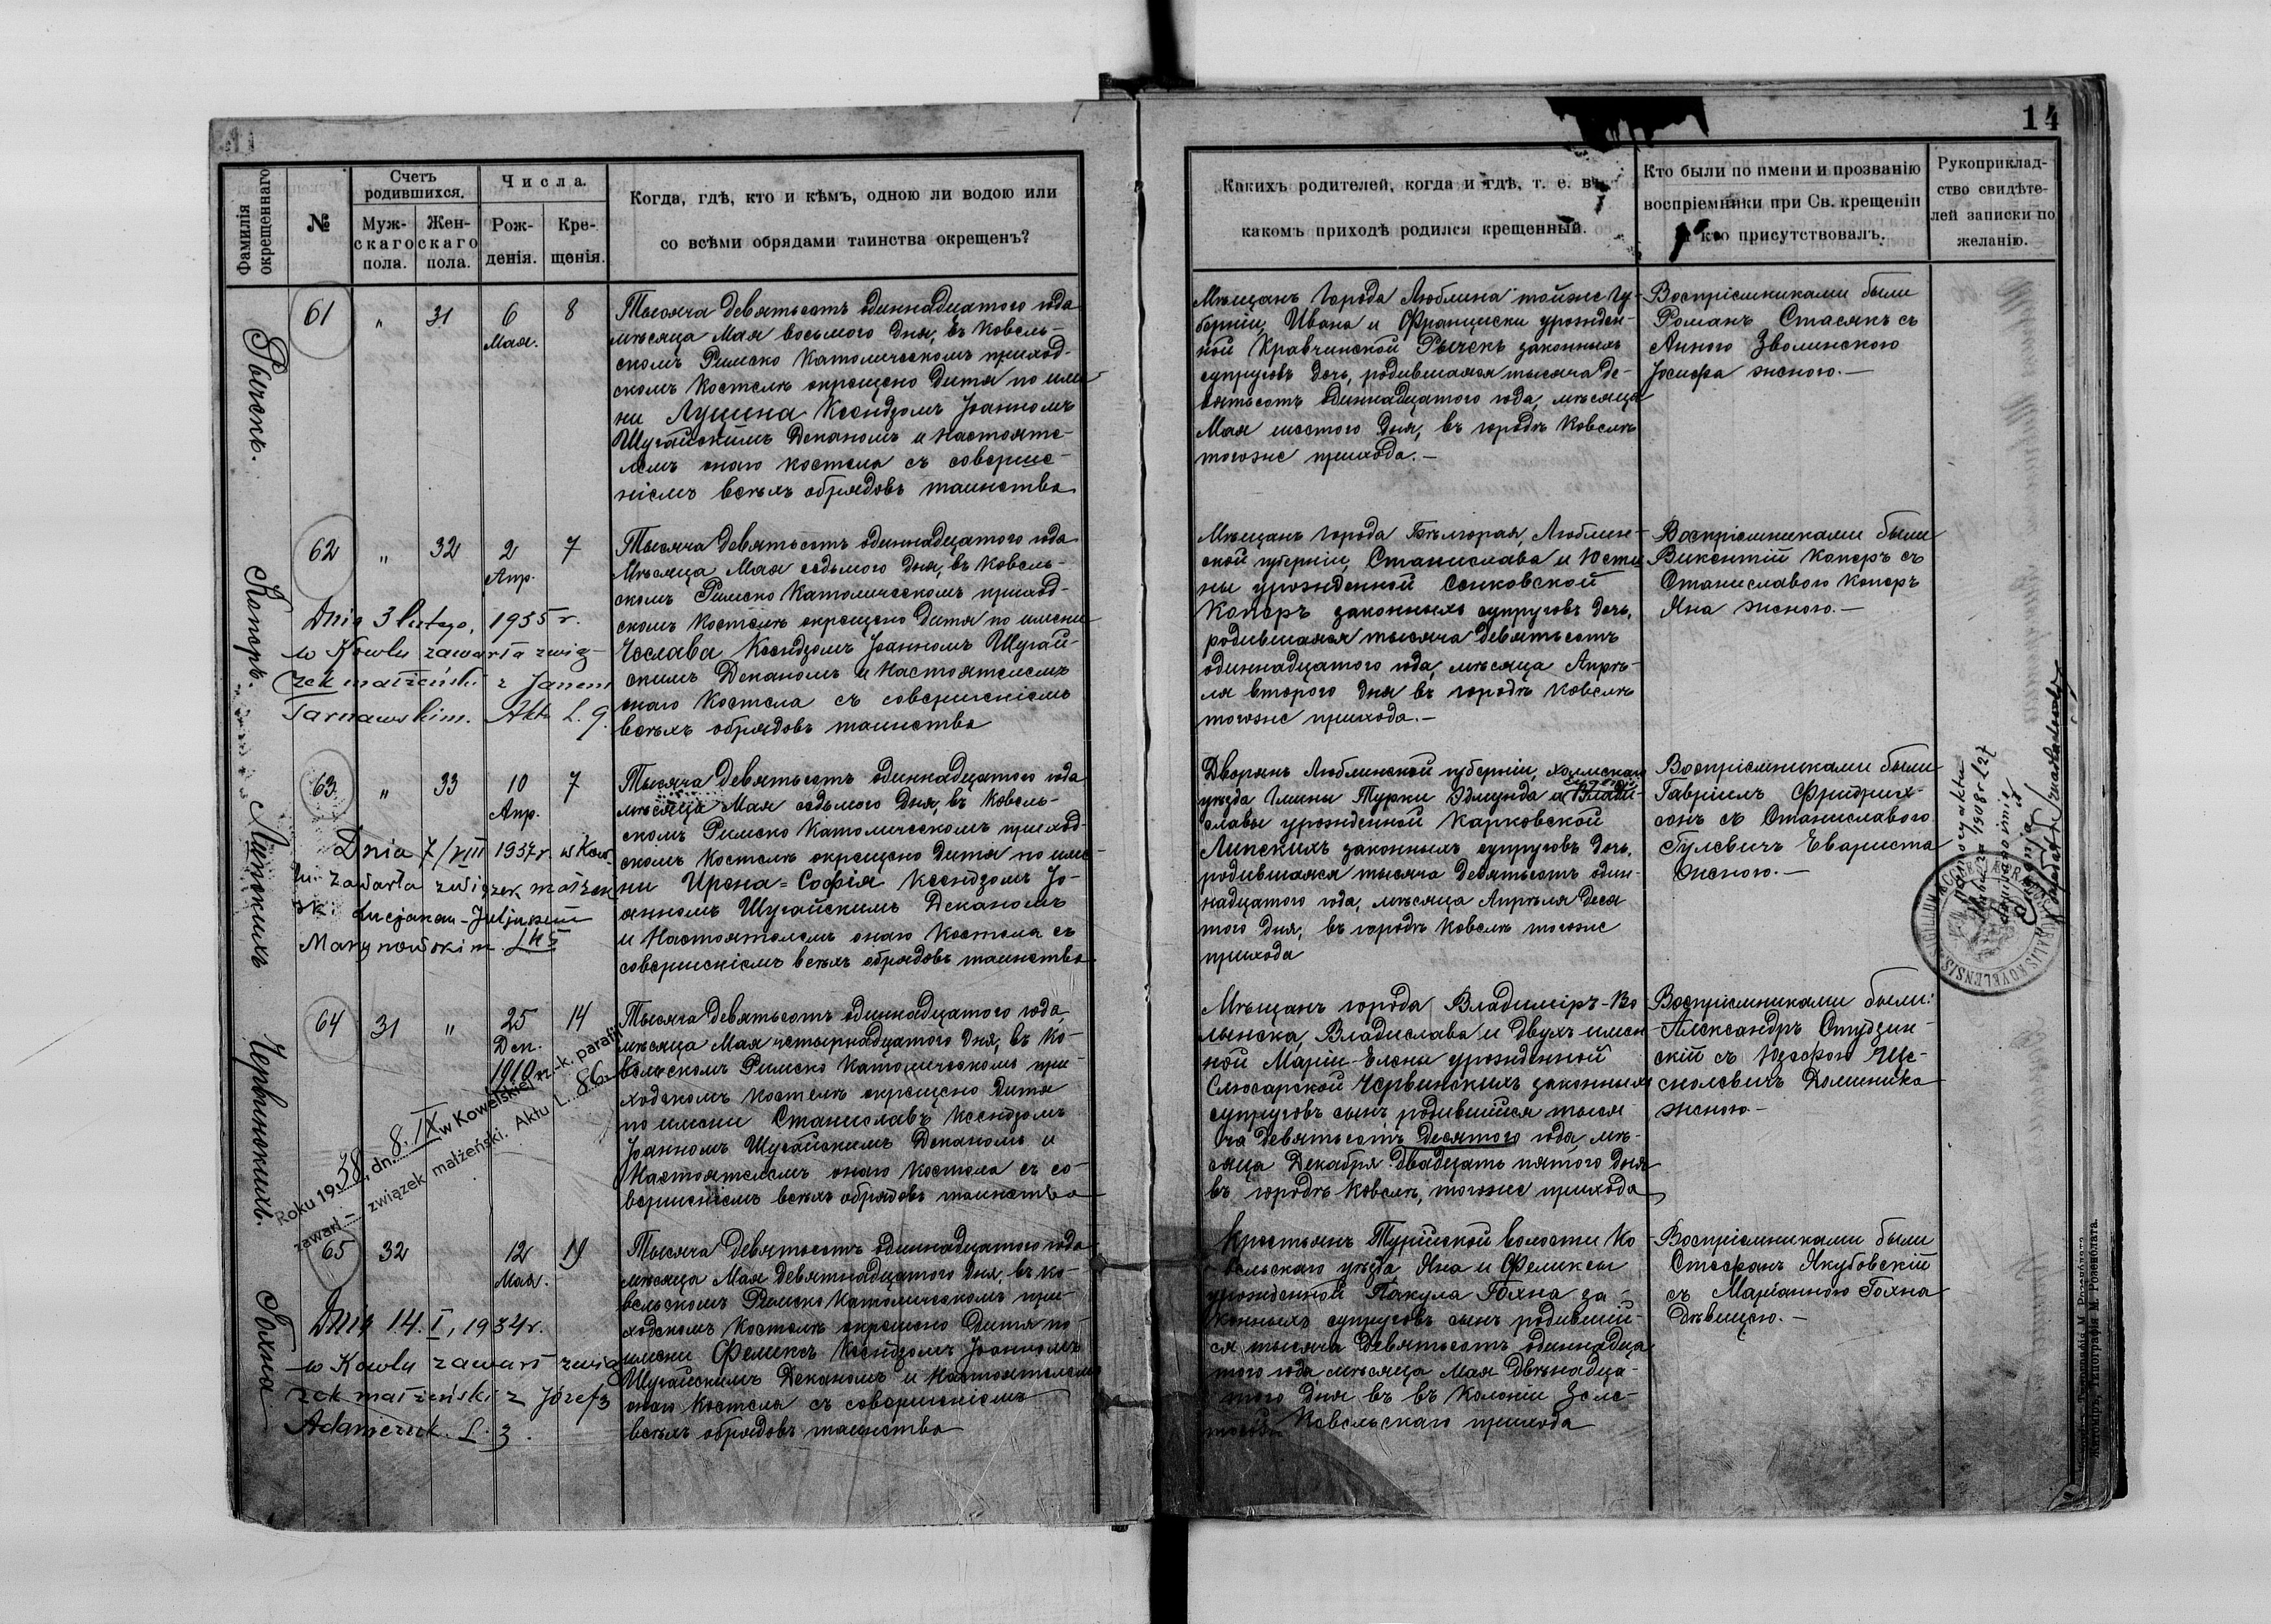 14
Фамилія
окрещеннаго
№
Счетъ
родившихся.
Муж-
скаго
пола.
Жен-
скаго
пола.
Числа.
Рож-
денія.
Кре-
щенія.
Когда, гдѣ, кто и кѣмъ, одною ли водою или
со всѣми обрядами таинства окрещенъ?
Какихъ родителей, когда и гдѣ, т. е. въ
какомъ приходѣ родился крещенный.
Кто были по имени и прозванію
воспріемники при Св. крещеніи
и кто присутствовалъ.
Рукоприклад-
ство свидѣте-
лей записки по
желанію.
Рычекъ.
61 " 31 6 8
Мая.
Тысяча девятьсотъ одиннадцатого года
мѣсяца Мая восьмого дня, въ Ковель-
скомъ Римско Католическомъ приход-
скомъ Костелѣ окрещено дитя по име-
ни Луцина Ксендзомъ Іоанномъ
Шугайскимъ Деканомъ и Настояте-
лемъ онаго костела съ соверше-
ніемъ всѣхъ обрядовъ таинства
Мѣщанъ города Люблина тойже гу-
берніи, Ивана и Франциски урожден-
ной Кравчинской Рычекъ законныхъ
супруговъ дочь, родившаяся тысяча де-
вятьсотъ одиннадцатого года, мѣсяца
Мая шестого дня, въ городѣ Ковелѣ
тогоже прихода.—
Воспріемниками были
Романъ Стасякъ съ
Анною Зволинскою
Іосифа женою.—
Коперъ.
62 " 32 2 7
Апр.
Тысяча девятьсотъ одиннадцатого года
Мѣсяца Мая седьмого дня, въ Ковель-
скомъ Римско Католическомъ приход-
скомъ Костелѣ окрещено дитя по имени
Чеслава Ксендзомъ Іоанномъ Шугай-
скимъ Деканомъ и Настоятелемъ
онаго Костела съ совершеніемъ
всѣхъ обрядовъ таинства
Dnia 3 lutego, 1935 r.
w Kowlu zawarła zwią-
zek małżeński z Janem
Tarnawskim. Akt L. 9.
Мѣщанъ города Бѣлгорая, Люблин-
ской губерніи, Станислава и Юсти
ны урожденной Сенковской
Коперъ законныхъ супруговъ дочь,
родившаяся тысяча девятьсотъ
одиннадцатого года, мѣсяца Апрѣ-
ля второго дня въ городѣ Ковелѣ
тогоже прихода.—
Воспріемниками были
Викентій Коперъ съ
Станиславою Коперъ
Яна женою.—
Липскихъ
63 " 33 10 7
Апр.
Тысяча девятьсотъ одиннадцатого года
мѣсяца Мая седьмого дня, въ Ковель-
скомъ Римско Католическомъ приход-
скомъ Костелѣ окрещено дитя по име-
ни Ирена=Софія Ксендзомъ Іо-
анномъ Шугайскимъ Деканомъ
и Настоятелемъ онаго Костела съ
совершеніемъ всѣхъ обрядовъ таинства
Dnia 7/VIII 1937 r. w Kow-
lu zawarła związek małżeń
ski Lucjanem-Juljuszem
Marynowskim.
Дворянъ Люблинской губерніи, холмскаго
уѣзда Гмины Турки Эдмунда и Влади-
славы урожденной Карковской
Липскихъ законныхъ супруговъ дочь,
родившаяся тысяча девятьсотъ один-
надцатого года, мѣсяца Апрѣля деся
того дня, въ городѣ Ковелѣ тогоже
прихода
Воспріемниками были
Гавріилъ Фридрих-
сонъ съ Станиславою
Гулевичъ Евариста
женою.—
Червинскихъ.
64 31 " 25 14
Дек.
1910 г.
Тысяча девятьсотъ одиннадцатого года
мѣсяца Мая четырнадцатого дня, въ Ко-
вельскомъ Римско Католическомъ при-
ходскомъ Костелѣ окрещено дитя
по имени Станиславъ Ксендзомъ
Іоанномъ Шугайскимъ Деканомъ и
Настоятелемъ онаго Костела съ со-
вершеніемъ всѣхъ обрядовъ таинства
Roku 1938, dn. 8. IX w Kowelskiej rz.-k. parafji
zawarł – związek małżeński. Aktu L. 86
Мѣщанъ города Владиміръ-Во
лынска, Владислава и двухъ имен
ной Маріи-Елены урожденной
Слюсарской Червинскихъ законныхъ
супруговъ сынъ родившійся тыся
ча девятьсотъ десятого года, мѣ-
сяца Декабря двадцать пятого дня
въ городѣ Ковелѣ, тогоже прихода
Воспріемниками были:
Александръ Студзин-
скій съ Юзефою
Доминика
женою—
Гохна
65 32 12 19
Мая.
Тысяча девятьсотъ одиннадцатого года
мѣсяца Мая девятнадцатого дня, въ Ко-
вельскомъ Римско Католическомъ при-
ходскомъ Костелѣ окрещено дитя по
имени Феликсъ Ксендзомъ Іоанномъ
Шугайскимъ Деканомъ и Настоятелемъ
онаго Костела съ совершеніемъ
всѣхъ обрядовъ таинства
Dnia 14. I, 1934 r.
w Kowlu zawarł zwią
zek małżeński z Józefą
Adamczuk. L. 3.
Крестьянъ Турійской волости Ко
вельскаго уѣзда Яна и Феликсы
урожденной Пакула Гохна за-
конныхъ супруговъ сынъ родившій-
ся тысяча девятьсотъ одиннадца
того года мѣсяца Мая двѣнадца-
того дня въ въ Колоніи
Ковельскаго прихода
Воспріемниками были
Стефанъ Якубовскій
съ Маріанною Гохна
Дѣвицею.—
Житоміръ, Типографія М. Розенблата.